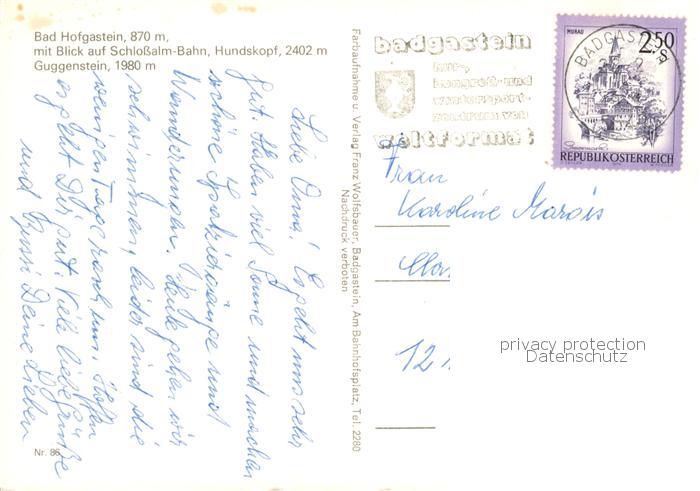 Bad Hofgastein, 870 m,
mit Blick auf Schloßalm-Bahn, Hundskopf, 2402 m
Guggenstein, 1980 m
Liebe Oma! Es geht uns sehr
gut. Haben viel Sonne und machen
schöne Spaziergänge und
Wanderungen. Heute gehen wir
schwimmen, leider sind die
wenigen Tage rasch um. Hoffen
es geht Dir gut. Viele liebe Grüße
und Bussi Deine Lieben
Nr. 86
Farbaufnahme u. Verlag Franz Wolfsbauer, Badgastein, Am Bahnhofsplatz, Tel. 2280
Nachdruck verboten
badgastein
kur-,
kongreß-und
wintersport-
zentrum von
weltformat
BADGAST
MURAU
2.50
S
Steiermark
REPUBLIK ÖSTERREICH
Frau
Karoline Marais
12
privacy protection
Datenschutz